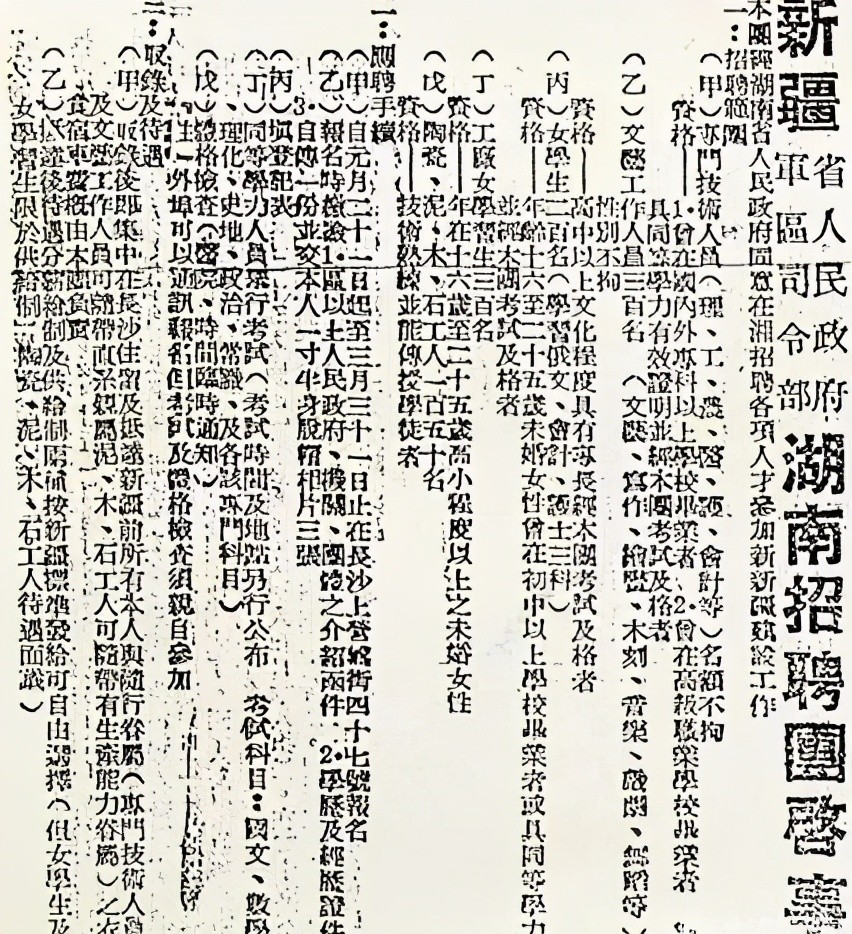 新疆省人民政府軍區司令部湖南招聘團啓事
本團經湖南省人民政府同意在湘招聘各項人才參加新新疆建設工作
一：招聘範圍
（甲）專門技術人員（理、工、農、醫、護、會計等）名額不拘
資格——1.曾在國內外專科以上學校畢業者、2.曾在高級職業學校畢業者
具同等學力有效證明並經本團考試及格者
（乙）文藝工作人員三百名（文藝、寫作、繪畫、木刻、音樂、戲劇、舞蹈等）
性別不拘
資格——高中以上文化程度具有專長經本團考試及格者
（丙）女學生二百名（學習俄文、會計、護士三科）
資格——年齡十六至二十五歲未婚女性曾在初中以上學校畢業者或具同等學力
並經本團考試及格者
（丁）工廠女學習生三百名
資格——年在十六歲至二十五歲高小程度以上之未婚女性
（戊）陶瓷、泥、木、石工人一百五十名
資格——技術熟練並能傳授學徒者
二：應聘手續
（甲）自元月二十一日起至三月三十一日止在長沙上營盤街四十七號報名
（乙）報名時繳驗1.區以上人民政府、機關、團體之介紹函件、2.學歷及經歷證件
3.自傳一份並交本人一寸半身脫帽相片三張
（丙）填登記表
（丁）同等學力人員舉行考試（考試時間及地點另行公布 考試科目：國文、數學
、理化、史地、政治、常識、及各該專門科目）
（戊）體格檢查（醫院、時間臨時通知）
『注』外埠可以通訊報名但考試及體格檢查須親自參加
三：收錄及待遇
（甲）收錄後即集中在長沙住宿及抵達新疆前所有本人與隨行眷屬（專門技術人員
及文藝工作人員可隨帶直系親屬泥、木、石工人可隨帶有生產能力眷屬）之衣
食宿車資概由本團負責
（乙）抵達後待遇分薪給制及供給制兩種按新疆標準發給可自由選擇（但女學生及
女學習生限於供給制陶瓷、泥、木、石工人待遇面議）